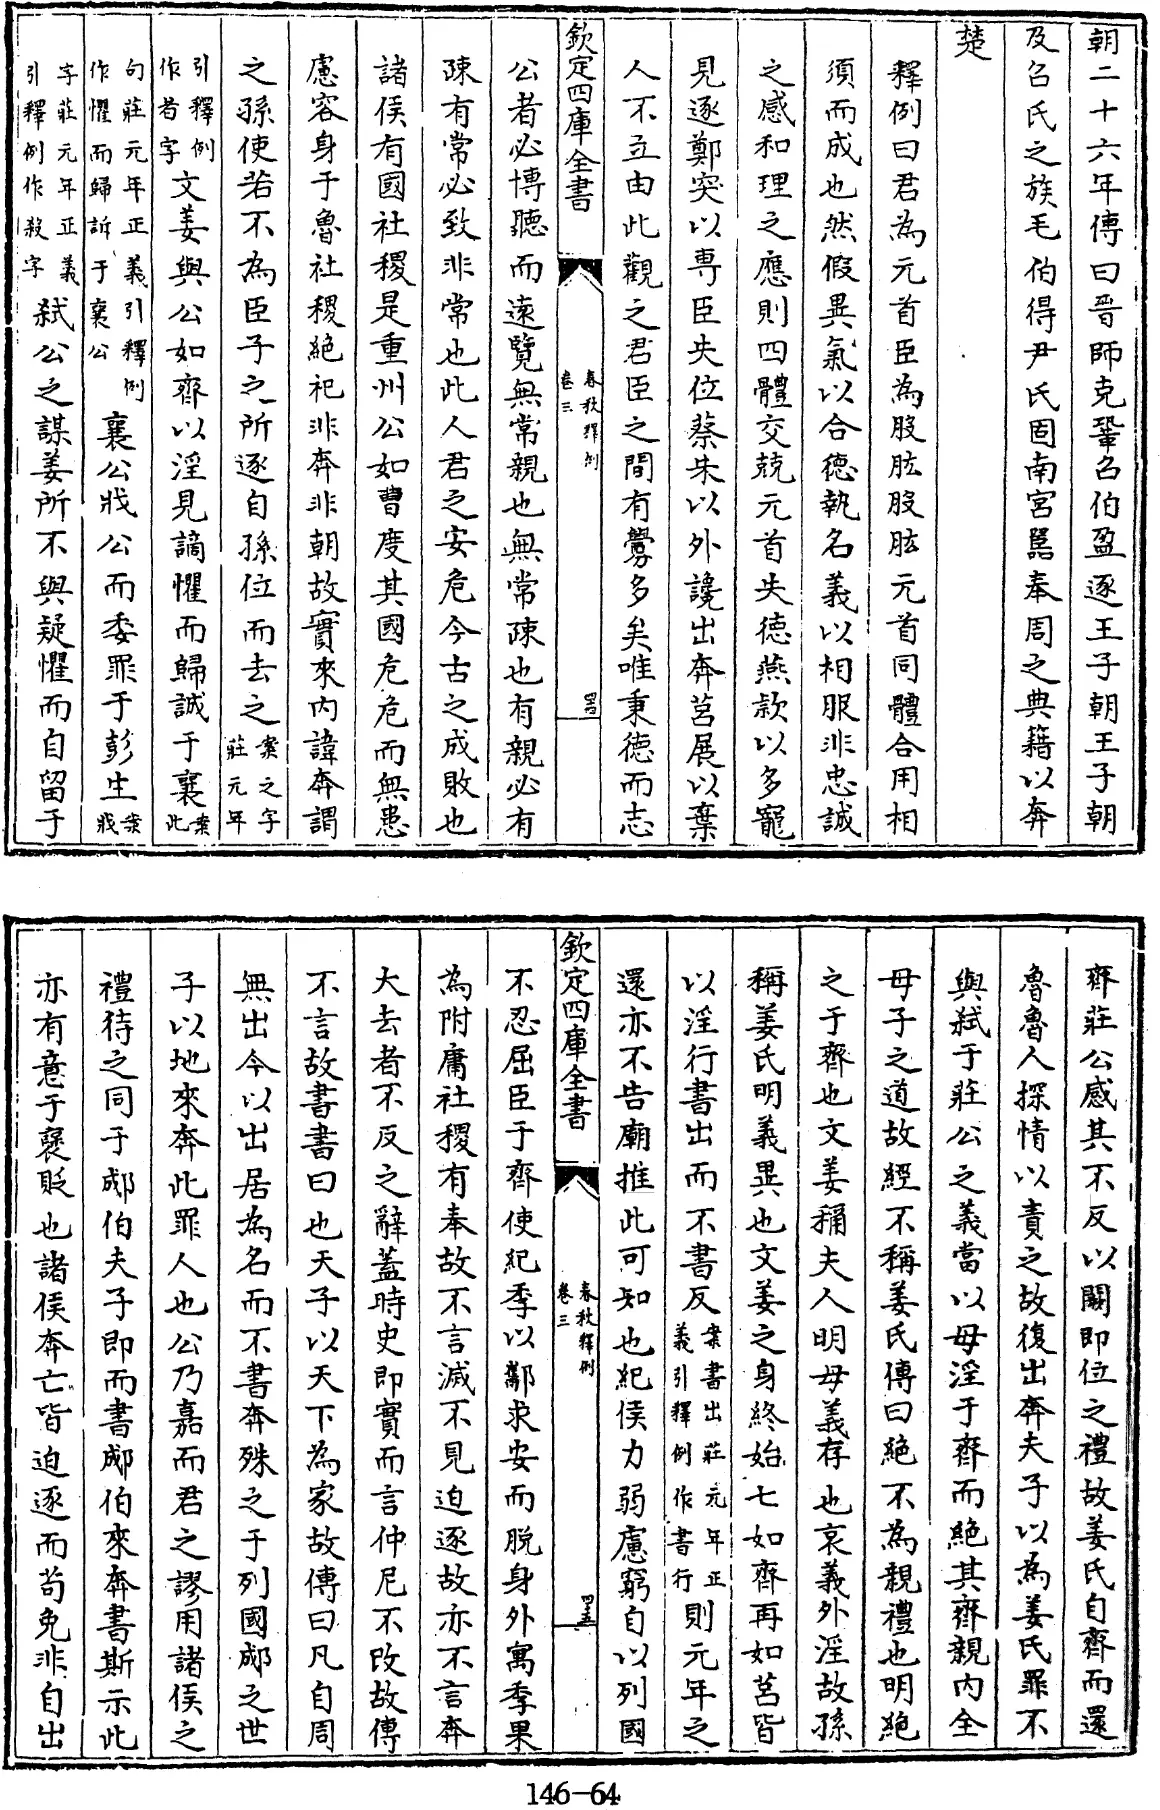 朝二十六年傳曰晉師克鞏召伯盈逐王子朝王子朝
及召氏之族毛伯得尹氏固南宮嚚奉周之典籍以奔
楚
釋例曰君為元首臣為股肱股肱元首同體合用相
須而成也然假異氣以合德執名義以相服非忠誠
之感和理之應則四體交兢元首失德燕款以多寵
見逐鄭突以專臣失位蔡朱以外讒出奔莒展以棄
人不立由此觀之君臣之間有釁多矣唯秉德而志
欽定四庫全書
春秋釋例
卷三
四十四
公者必博聽而遠覽無常親也無常疎也有親必有
疎有常必致非常也此人君之安危今古之成敗也
諸侯有國社稷是重州公如曹度其國危危而無患
慮容身于魯社稷絶祀非奔非朝故實來内諱奔謂
之孫使若不為臣子之所逐自孫位而去之案之字
莊元年
引釋例
作若字文姜與公如齊以淫見謫懼而歸誠于襄案
此
句莊元年正義引釋例
作懼而歸訴于襄公襄公戕公而委罪于彭生案
戕
字莊元年正義
引釋例作殺字弑公之謀姜所不與疑懼而自留于
齊莊公感其不反以闕即位之禮故姜氏自齊而還
魯魯人探情以責之故復出奔夫子以為姜氏罪不
與弑于莊公之義當以母淫于齊而絶其齊親内全
母子之道故經不稱姜氏傳曰絶不為親禮也明絶
之于齊也文姜稱夫人明母義存也哀義外淫故孫
稱姜氏明義異也文姜之身終始七如齊再如莒皆
以淫行書出而不書反案書出莊元年正
義引釋例作書行則元年之
還亦不告廟推此可知也紀侯力弱慮窮自以列國
欽定四庫全書
春秋釋例
卷三
四十五
不忍屈臣于齊使紀季以酅求安而脱身外寓季果
為附庸社稷有奉故不言滅不見迫逐故亦不言奔
大去者不反之辭蓋時史即實而言仲尼不改故傳
不言故書書曰也天子以天下為家故傳曰凡自周
無出今以出居為名而不書奔殊之于列國郕之世
子以地來奔此罪人也公乃嘉而君之謬用諸侯之
禮待之同于郕伯夫子即而書郕伯來奔書斯示此
亦有意于褒貶也諸侯奔亡皆迫逐而苟免非自出
146-64